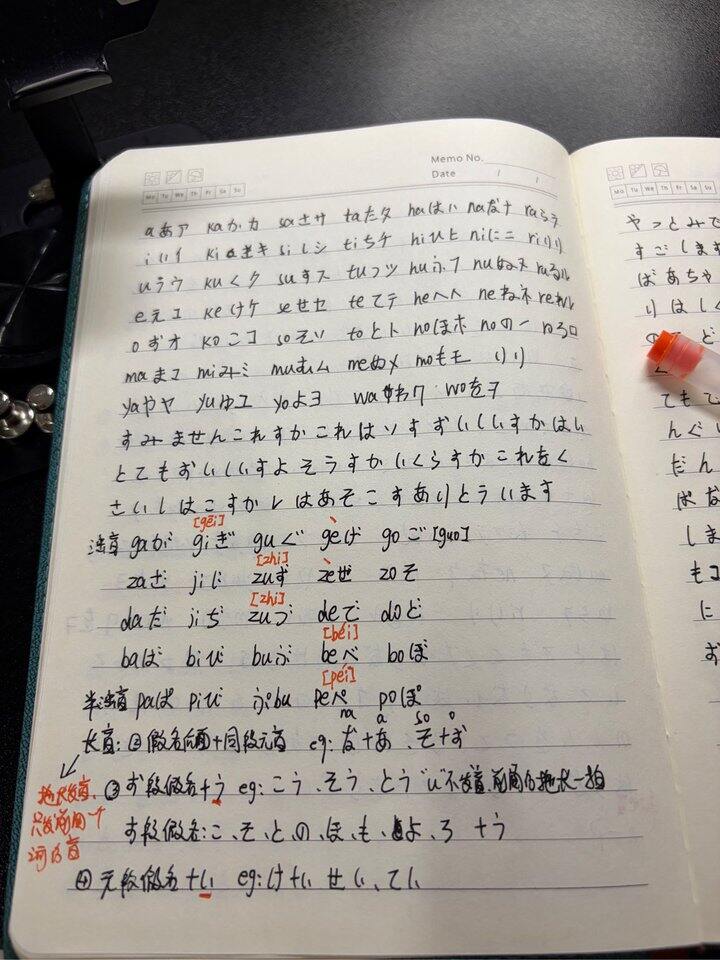 Memo No.
Date / /
Mo Tu We Th Fr Sa Su
aあア kaかカ saさサ taたタ haはハ naなナ raらラ
iいイ kiきキ siしシ tiちチ hiひヒ niにニ riりリ
uうウ kuくク suすス tuつツ huふフ nuぬヌ ruるル
eえエ keけケ seせセ teてテ heへヘ neねネ reれレ
oおオ koこコ soそソ toとト hoほホ noのノ roろロ
maまマ miみミ muむム meめメ moもモ りリ
yaやヤ yuゆユ yoよヨ waわワ woをヲ
すみませんこれすかこれはいすおいしいすかはい
とてもおいしいすよそうすかいくらすかこれをく
さいしはこすかレはあそこすありとういます
[gēi]
浊音 gaが giぎ guぐ geげ goご [guo]
[zhi]
zaざ jiじ zuず zeぜ zoぞ
[zhi]
daだ jiぢ zuづ deで doど
[béi]
baば biび buぶ beべ boぼ
[péi]
半浊音 paぱ piぴ ぷbu peぺ poぽ
na a so o
长音: ② 假名后面+同段元音 eg: な+あ、そ+お
③ お段假名+う eg: こう、そう、とう "u"不发音,前面的拖长一拍
拖长发音,
只发前面一个
词的音
お段假名: こ、そ、と、の、ほ、も、よ、ろ +う
④ え段假名+い eg: け+い せい、てい
やっとみで
すごします
ばあちゃ
りはしく
ど
ても
んぐ
だん
はな
しま
もコ
に
お